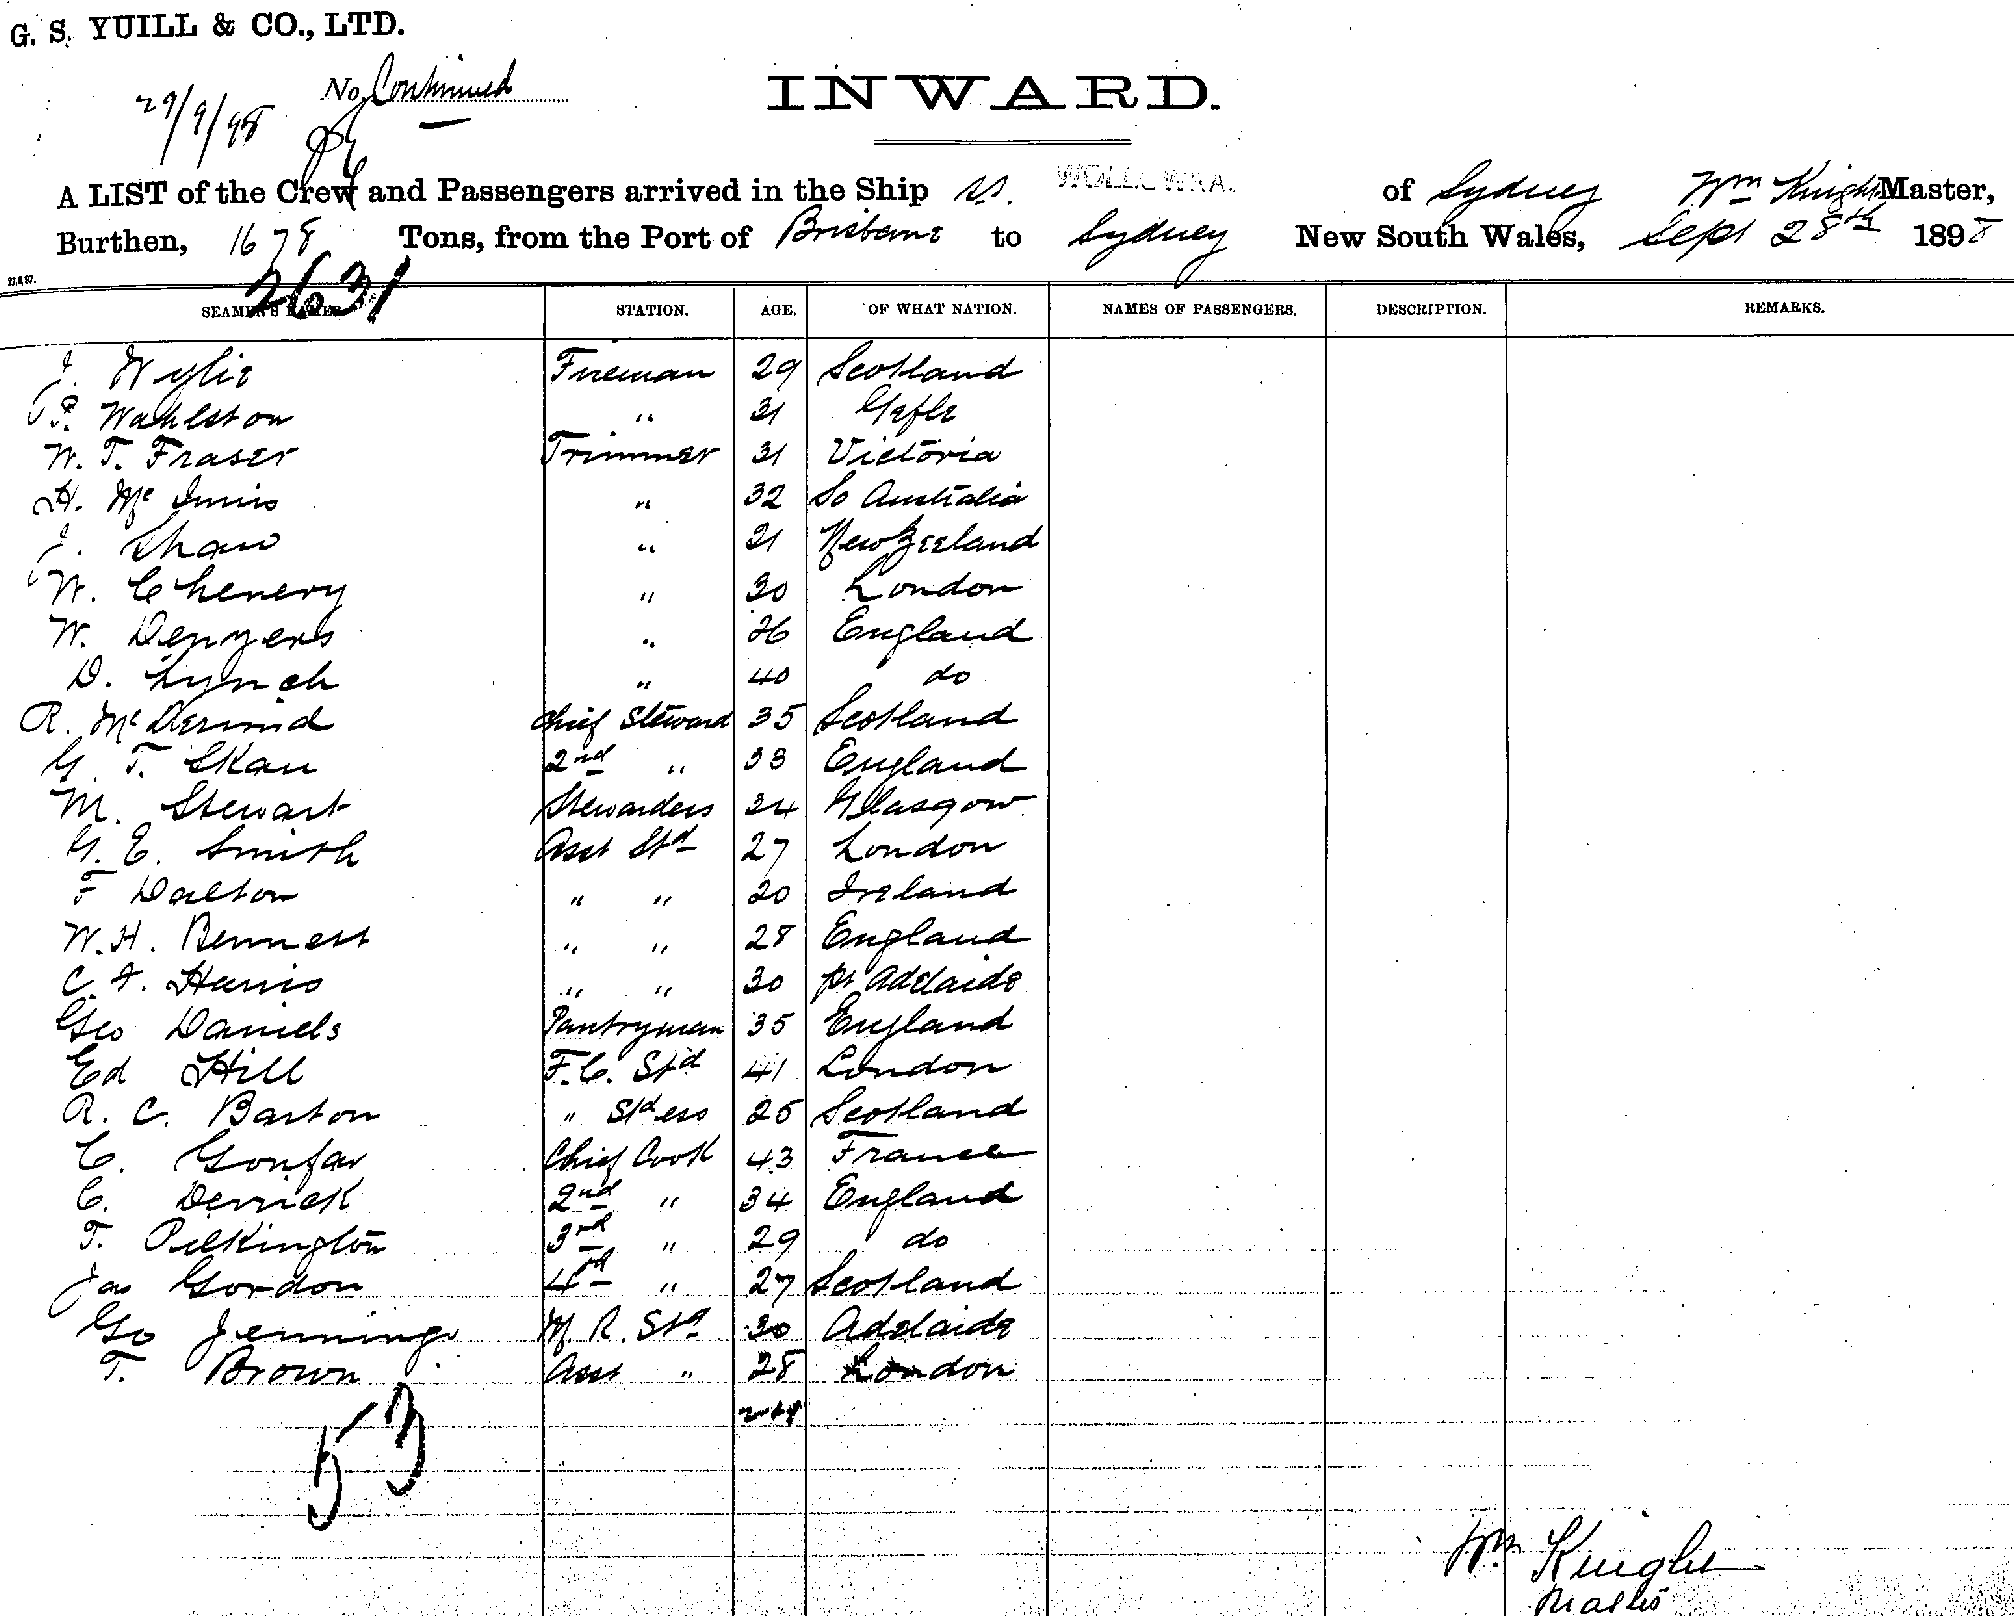 G. S. YUILL & CO., LTD.
No Continued
29/9/98
INWARD.
A LIST of the Crew and Passengers arrived in the Ship ss. WOLLOWRA. of Sydney Wm Knight Master,
Burthen, 1678 Tons, from the Port of Brisbane to Sydney New South Wales, Sept 28th 1898
2631
SEAMEN'S NAMES. STATION. AGE. OF WHAT NATION. NAMES OF PASSENGERS. DESCRIPTION. REMARKS.
J. Wylie Fireman 29 Scotland
P. Wahlston " 31 Gefle
W. T. Fraser Trimmer 31 Victoria
H. McInnis " 32 So Australia
J. Shaw " 21 New Zeeland
W. Chenery " 30 London
W. Denyers " 26 England
D. Lynch " 40 do
R. McDermid Chief Steward 35 Scotland
G. T. Skau 2nd " 33 England
M. Stewart Stewardess 34 Glasgow
G. E. Smith Asst Std 27 London
F Dalton " " 20 Ireland
W. H. Bennett " " 28 England
C. F. Harris " " 30 pt Adelaide
Geo Daniels Pantryman 35 England
Ed Hill F.C. Std 41 London
R. C. Barton " Stdess 25 Scotland
C. Gonfar Chief Cook 43 France
C. Derrick 2nd " 34 England
T. Pilkington 3rd " 29 do
Jas Gordon 4rd " 27 Scotland
Go Jennings M. R. Std 30 Adelaide
T. Brown Asst " 28 London
53
Wm Knight
Master